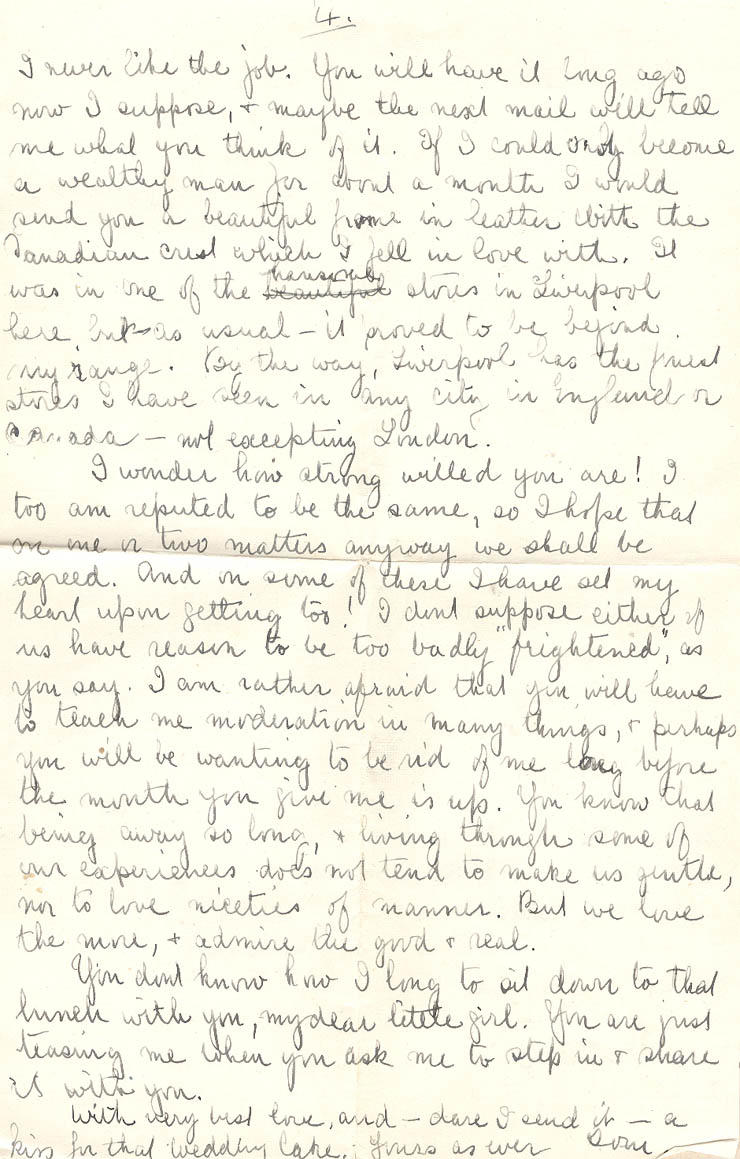 4.
I never like the job. You will have it long ago
now I suppose, & maybe the next mail will tell
me what you think of it. If I could only become
a wealthy man for about a month I would
send you a beautiful frame in leather with the
Canadian crest which I fell in love with. It
was in one of the beautiful handsome stores in Liverpool
here, but as usual – it proved to be beyond
my range. By the way, Liverpool has the finest
stores I have seen in any city in England or
Canada – not excepting London.
I wonder how strong willed you are! I
too am reputed to be the same, so I hope that
on one or two matters anyway we shall be
agreed. And on some of these I have set my
heart upon getting too! I dont suppose either of
us have reason to be too badly "frightened", as
you say. I am rather afraid that you will have
to teach me moderation in many things, & perhaps
you will be wanting to be rid of me long before
the month you give me is up. You know that
being away so long, & living through some of
our experiences does not tend to make us gentle,
nor to love niceties of manner. But we love
the more, & admire the good & real.
You dont know how I long to sit down to that
lunch with you, my dear little girl. You are just
teasing me when you ask me to step in & share
it with you.
With very best love, and – dare I send it – a
kiss for that Wedding Cake. Yours as ever